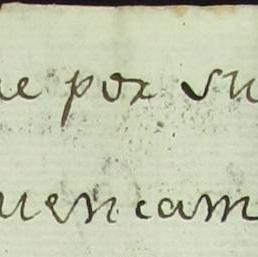 ue por su
uencam